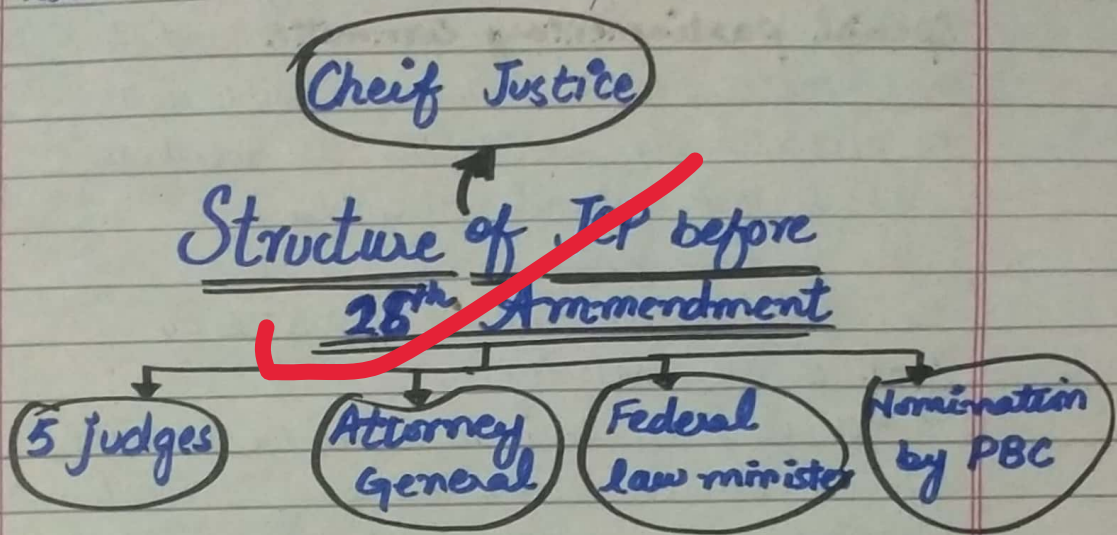 Cheif Justice
Structure of JCP before
28th Ammendment
5 judges
Attorney
General
Federal
law minister
Nomination
by PBC